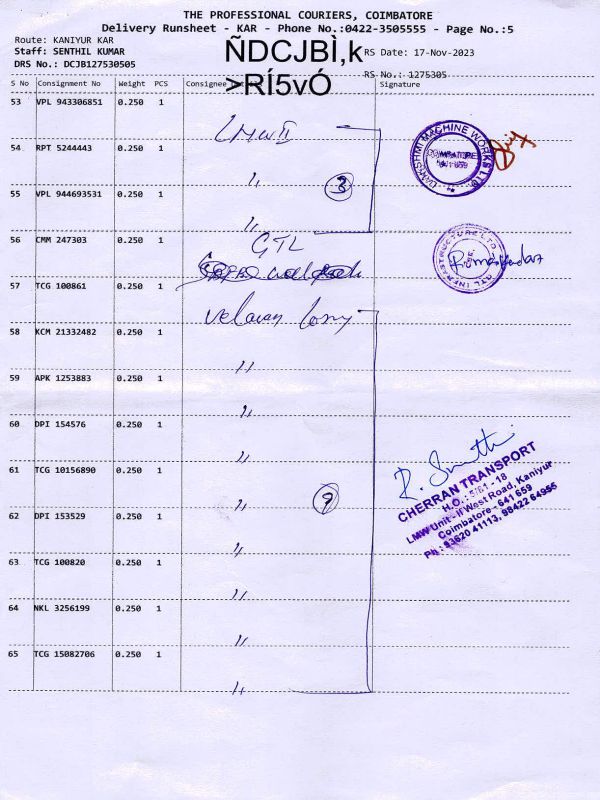 THE PROFESSIONAL COURIERS, COIMBATORE
Delivery Runsheet - KAR - Phone No.:0422-3505555 - Page No.:5
Route: KANIYUR KAR
Staff: SENTHIL KUMAR
DRS No.: DCJB127530505
ÑDCJBÌ,k
>RÍ5vÓ
RS Date: 17-Nov-2023
RS No.: 1275305
S No Consignment No Weight PCS Consignee Signature
53 VPL 943306851 0.250 1
LMW II
54 RPT 5244443 0.250 1
〃
3
LAKSHMI MACHINE WORKS LTD
COIMBATORE
641 659
55 VPL 944693531 0.250 1
〃
56 CMM 247303 0.250 1
GTL
GTL INFRASTRUCTURE LTD
57 TCG 100861 0.250 1
velavan
58 KCM 21332482 0.250 1
〃
59 APK 1253883 0.250 1
〃
60 DPI 154576 0.250 1
〃
61 TCG 10156890 0.250 1
〃
9
CHERRAN TRANSPORT
H.O.: 5/61 - 18
LMW Unit - II West Road, Kaniyur
Coimbatore - 641 659
Ph : 93620 41113, 98422 64955
62 DPI 153529 0.250 1
〃
63 TCG 100820 0.250 1
〃
64 NKL 3256199 0.250 1
〃
65 TCG 15082706 0.250 1
〃